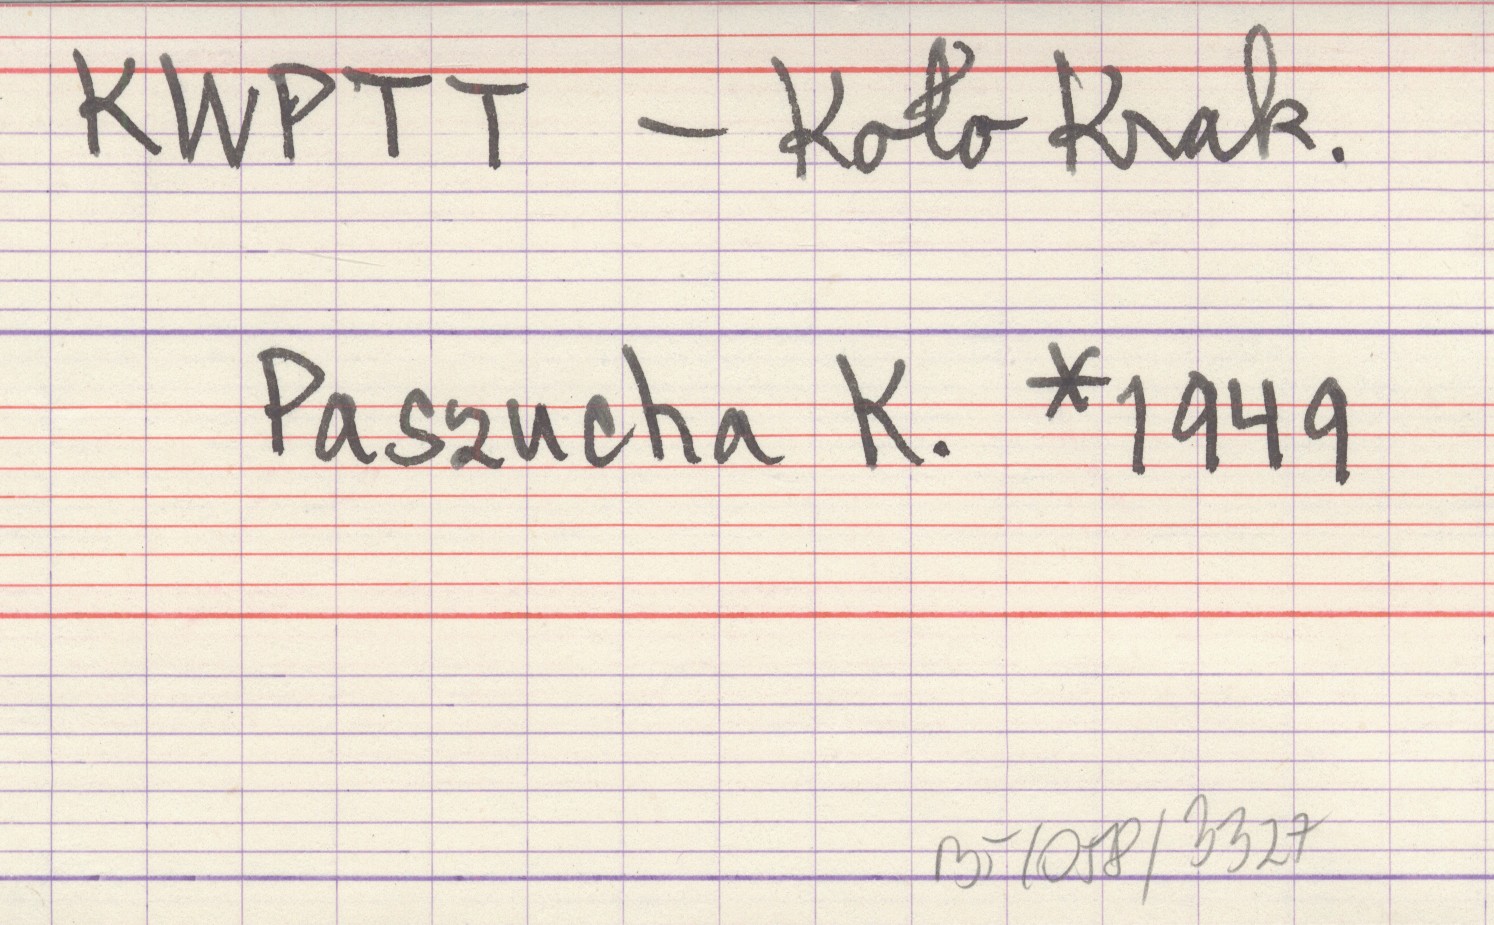 KWPTT – Koło Krak.
Paszucha K. *1949
BT/058/3327